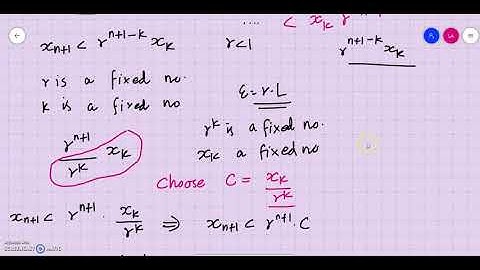 ....
< x_k r^{n+1-k}
x_{n+1} < r^{n+1-k} x_k   r<1   r^{n+1-k} x_k
r is a fixed no.
k is a fixed no
ε = r - L
r^k is a fixed no.
x_k a fixed no
r^{n+1}/r^k x_k
Choose C = x_k/r^k
x_{n+1} < r^{n+1} · x_k/r^k ⇒ x_{n+1} < r^{n+1} · C